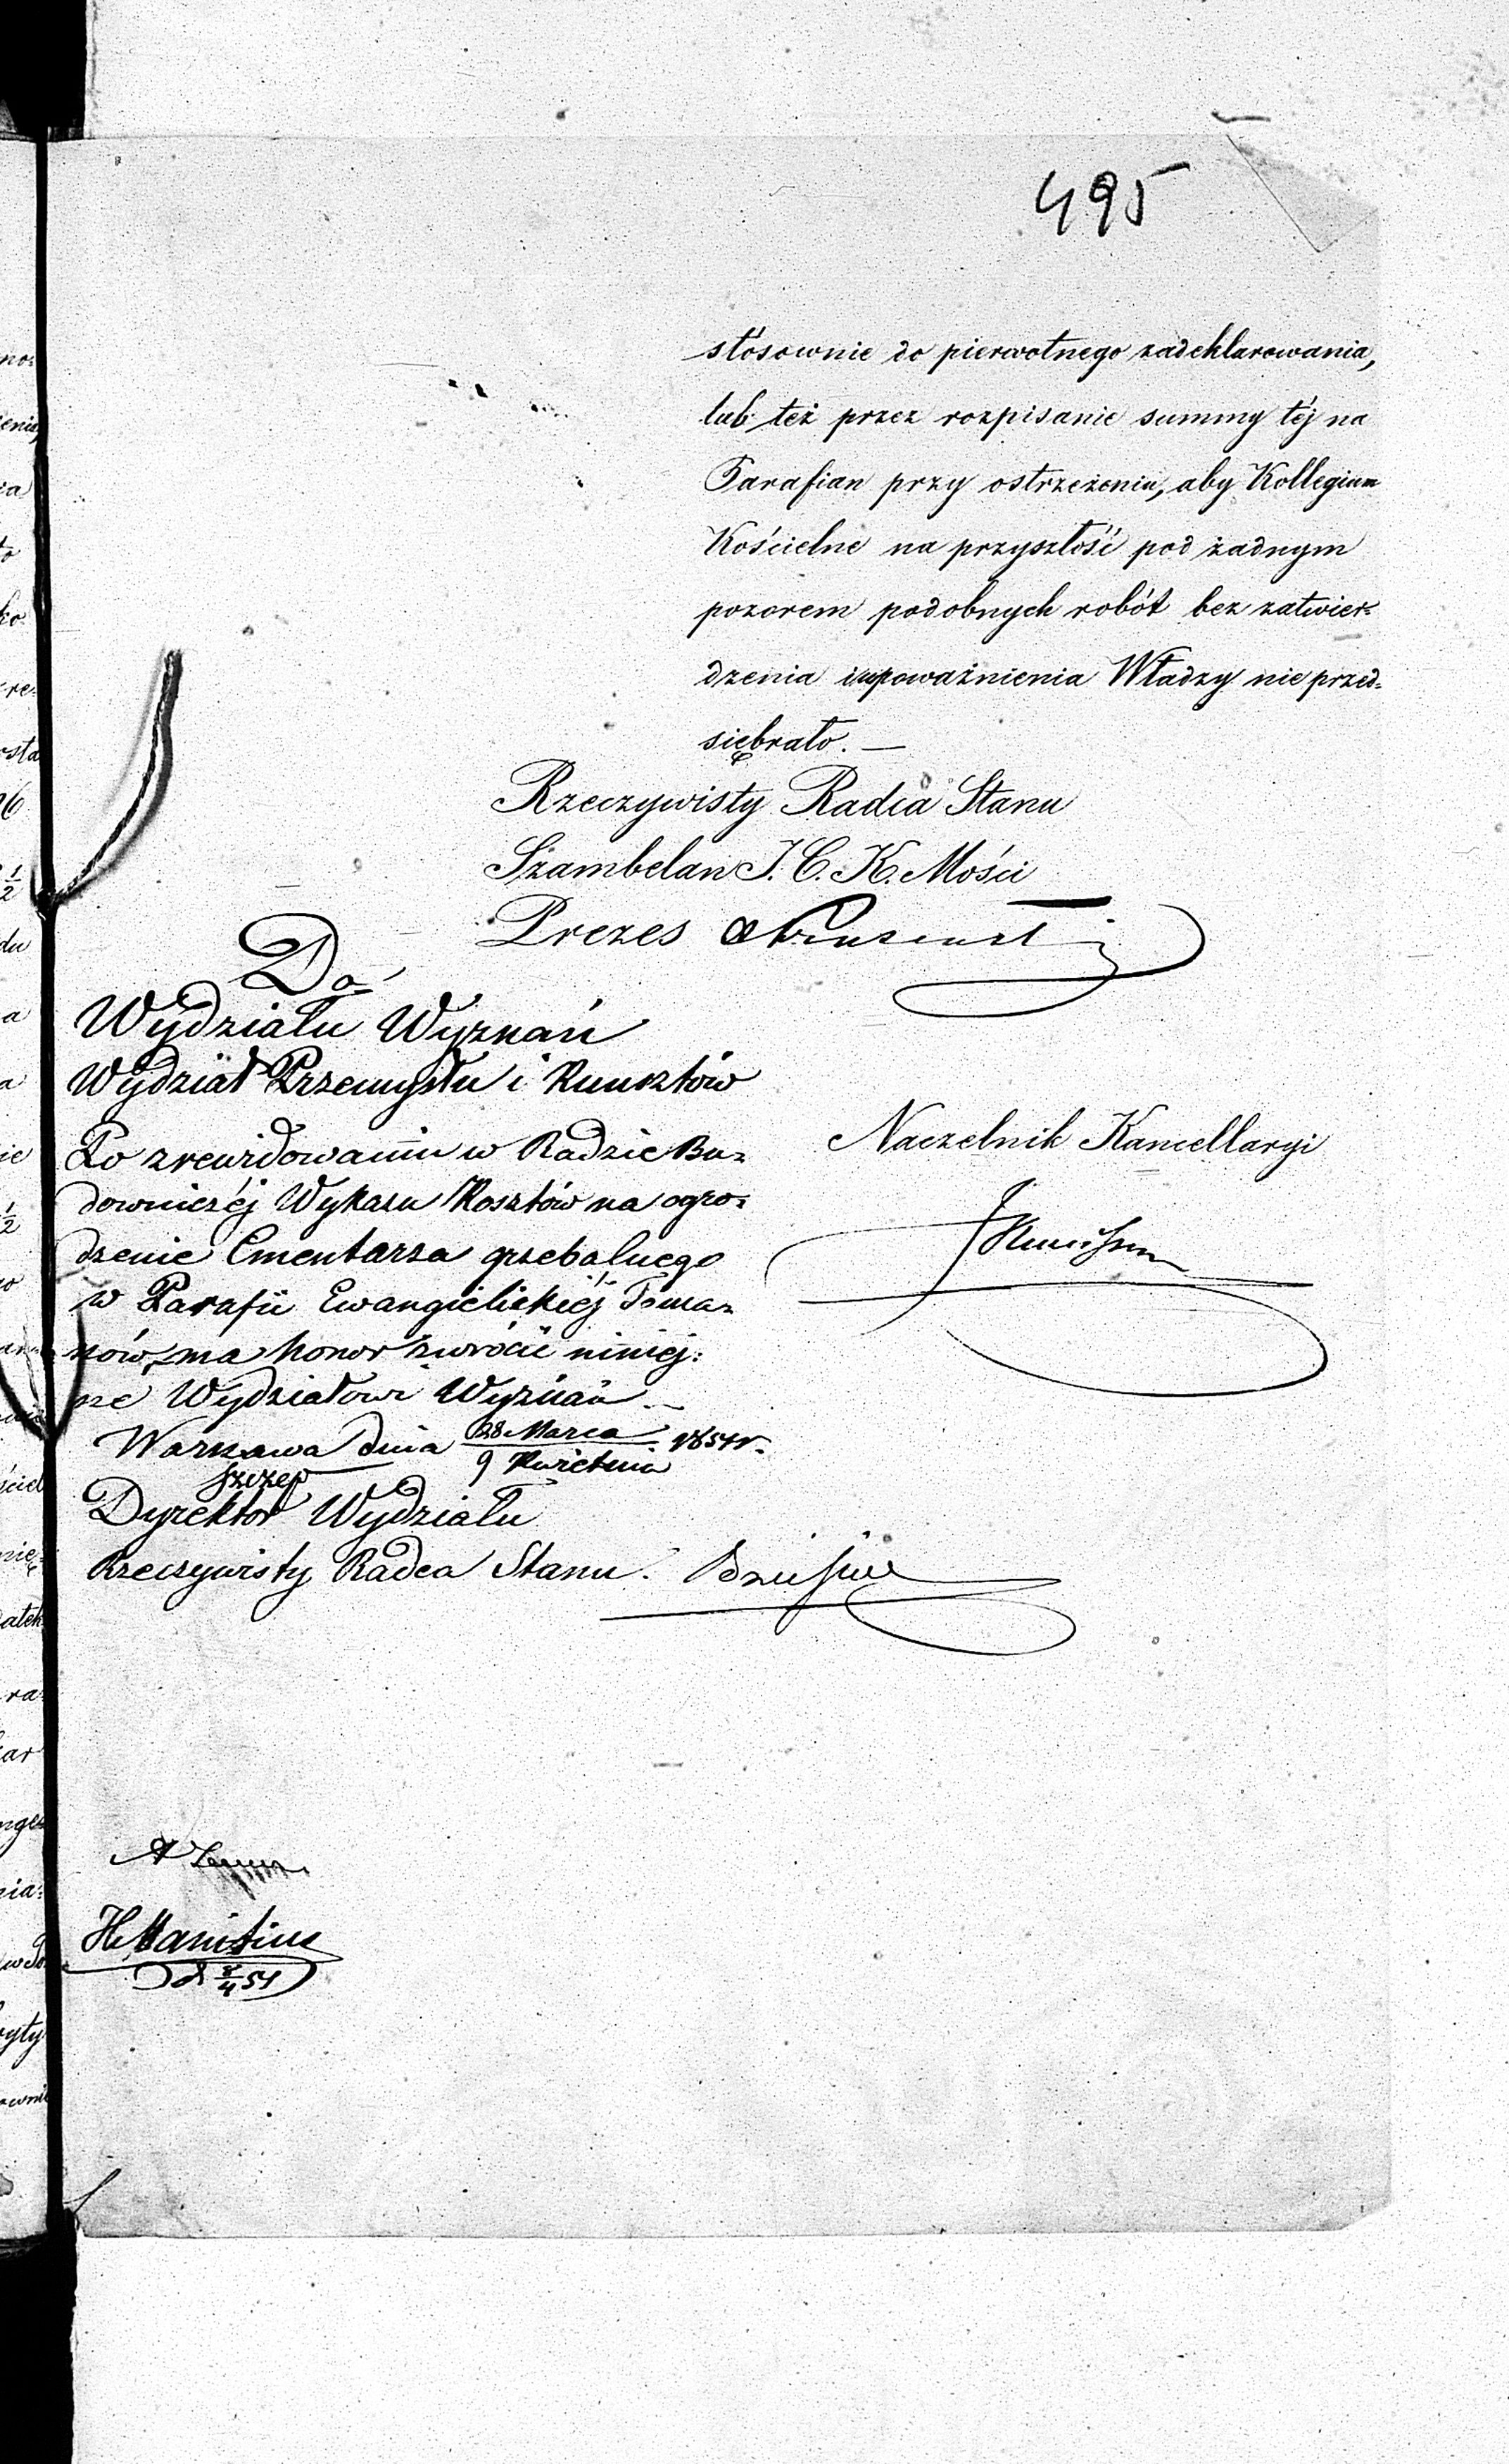 495
stósownie do pierwotnego zadeklarowania,
lub też przez rozpisanie summy téj na
Parafian przy ostrzeżeniu, aby Kollegium
Kościelne na przyszłość pod żadnym
pozorem podobnych robót bez zatwier=
dzenia i upoważnienia Władzy nie przed=
siębrało. —
Rzeczywisty Radca Stanu
Szambelan J. C. K. Mości
Prezes
Do
Wydziału Wyznań
Wydział Przemysłu i Kunsztów
Po zrewidowaniu w Radzie Bu=
downiczéj Wykazu Kosztów na ogro=
dzenie Cmentarza grzebalnego
w Parafii Ewangielickiéj Toma=
szów, ma honor zwrócić niniej:
sze Wydziałowi Wyznań. —
Warszawa dnia 28 Marca / 9 Kwietnia 1854 r.
Dyrektor Wydziału
Rzeczywisty Radca Stanu.
Naczelnik Kancellaryi
H Manitius